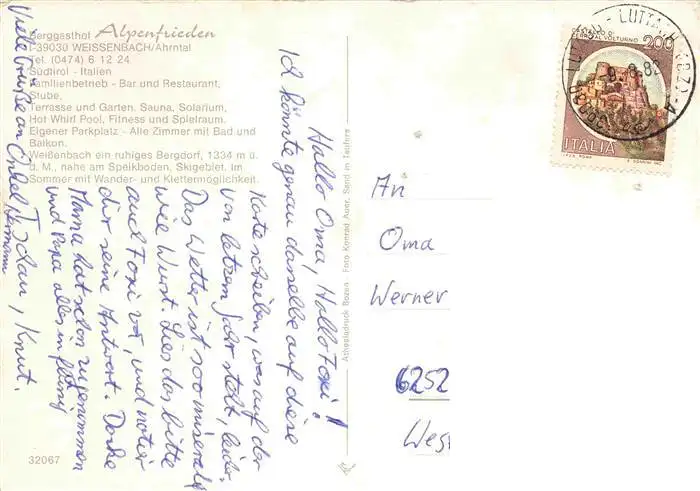 Berggasthof Alpenfrieden
I-39030 WEISSENBACH/Ahrntal
Tel. (0474) 6 12 24
Südtirol - Italien
Familienbetrieb - Bar und Restaurant,
Stube,
Terrasse und Garten, Sauna, Solarium,
Hot Whirl Pool, Fitness und Spielraum.
Eigener Parkplatz - Alle Zimmer mit Bad und
Balkon.
Weißenbach ein ruhiges Bergdorf, 1334 m ü.
d. M., nahe am Speikboden, Skigebiet, im
Sommer mit Wander- und Klettermöglichkeit.
Hallo Oma, Hallo Foxi!
Ich könnte genau dasselbe auf diese
Karte schreiben, was auf der
von letzem Jahr steht, leider.
Das Wetter ist sooo miserabel
wie Wurst. Lies das bitte
auch Foxi vor, und notier
dir seine Antwort. Danke
Mama hat schon zugenommen
und Papa alles in
Viele Grüße an Onkel Hermann
Tschau, Knut.
32067
Athesiadruck Bozen - Foto Konrad Auer, Sand in Taufers
CASTELLO DI
CERRO AL VOLTURNO
200
ITALIA
LUTTACH (BZ)
9.8.8
An
Oma
Werner
6252
Wes